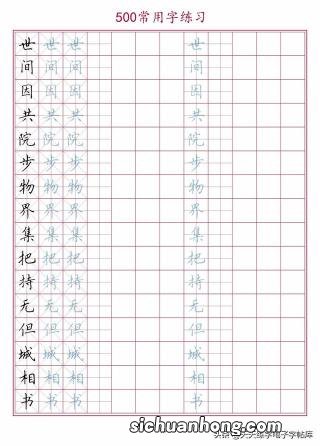 500常用字练习
世 世 世 世
间 间 间 间
因 因 因 因
共 共 共 共
院 院 院 院
步 步 步 步
物 物 物 物
界 界 界 界
集 集 集 集
把 把 把 把
持 持 持 持
无 无 无 无
但 但 但 但
城 城 城 城
相 相 相 相
书 书 书 书
sichuanhong.com